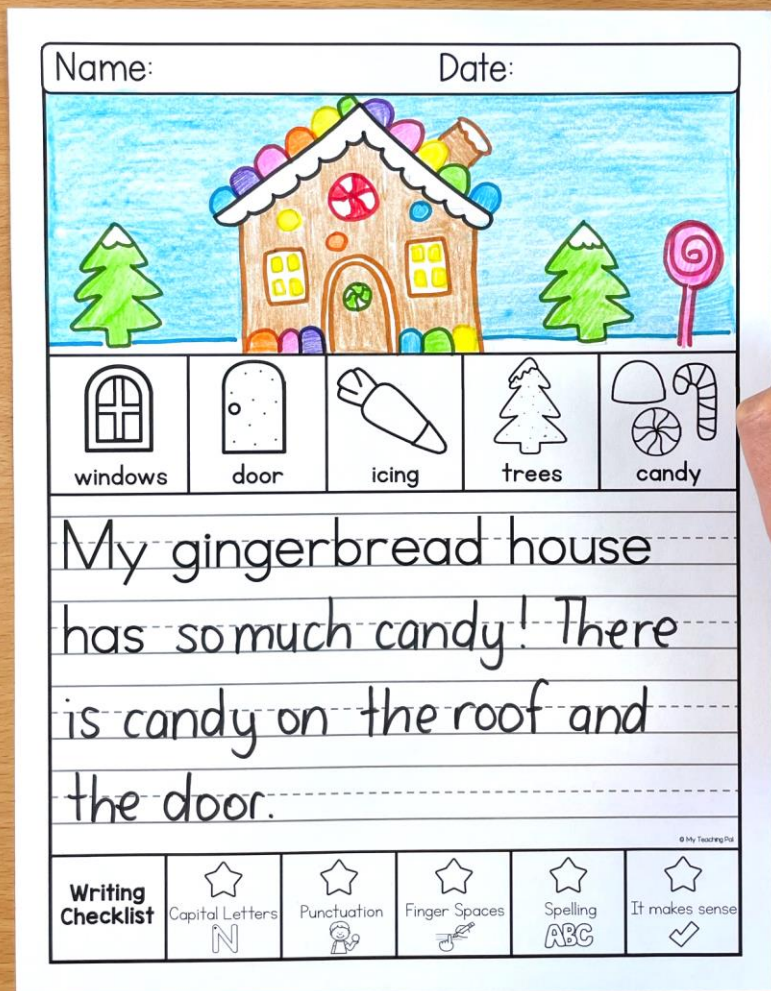 Name: Date:
windows door icing trees candy
My gingerbread house
has so much candy! There
is candy on the roof and
the door.
© My Teaching Pal
Writing
Checklist
Capital Letters Punctuation Finger Spaces Spelling It makes sense
N ABC